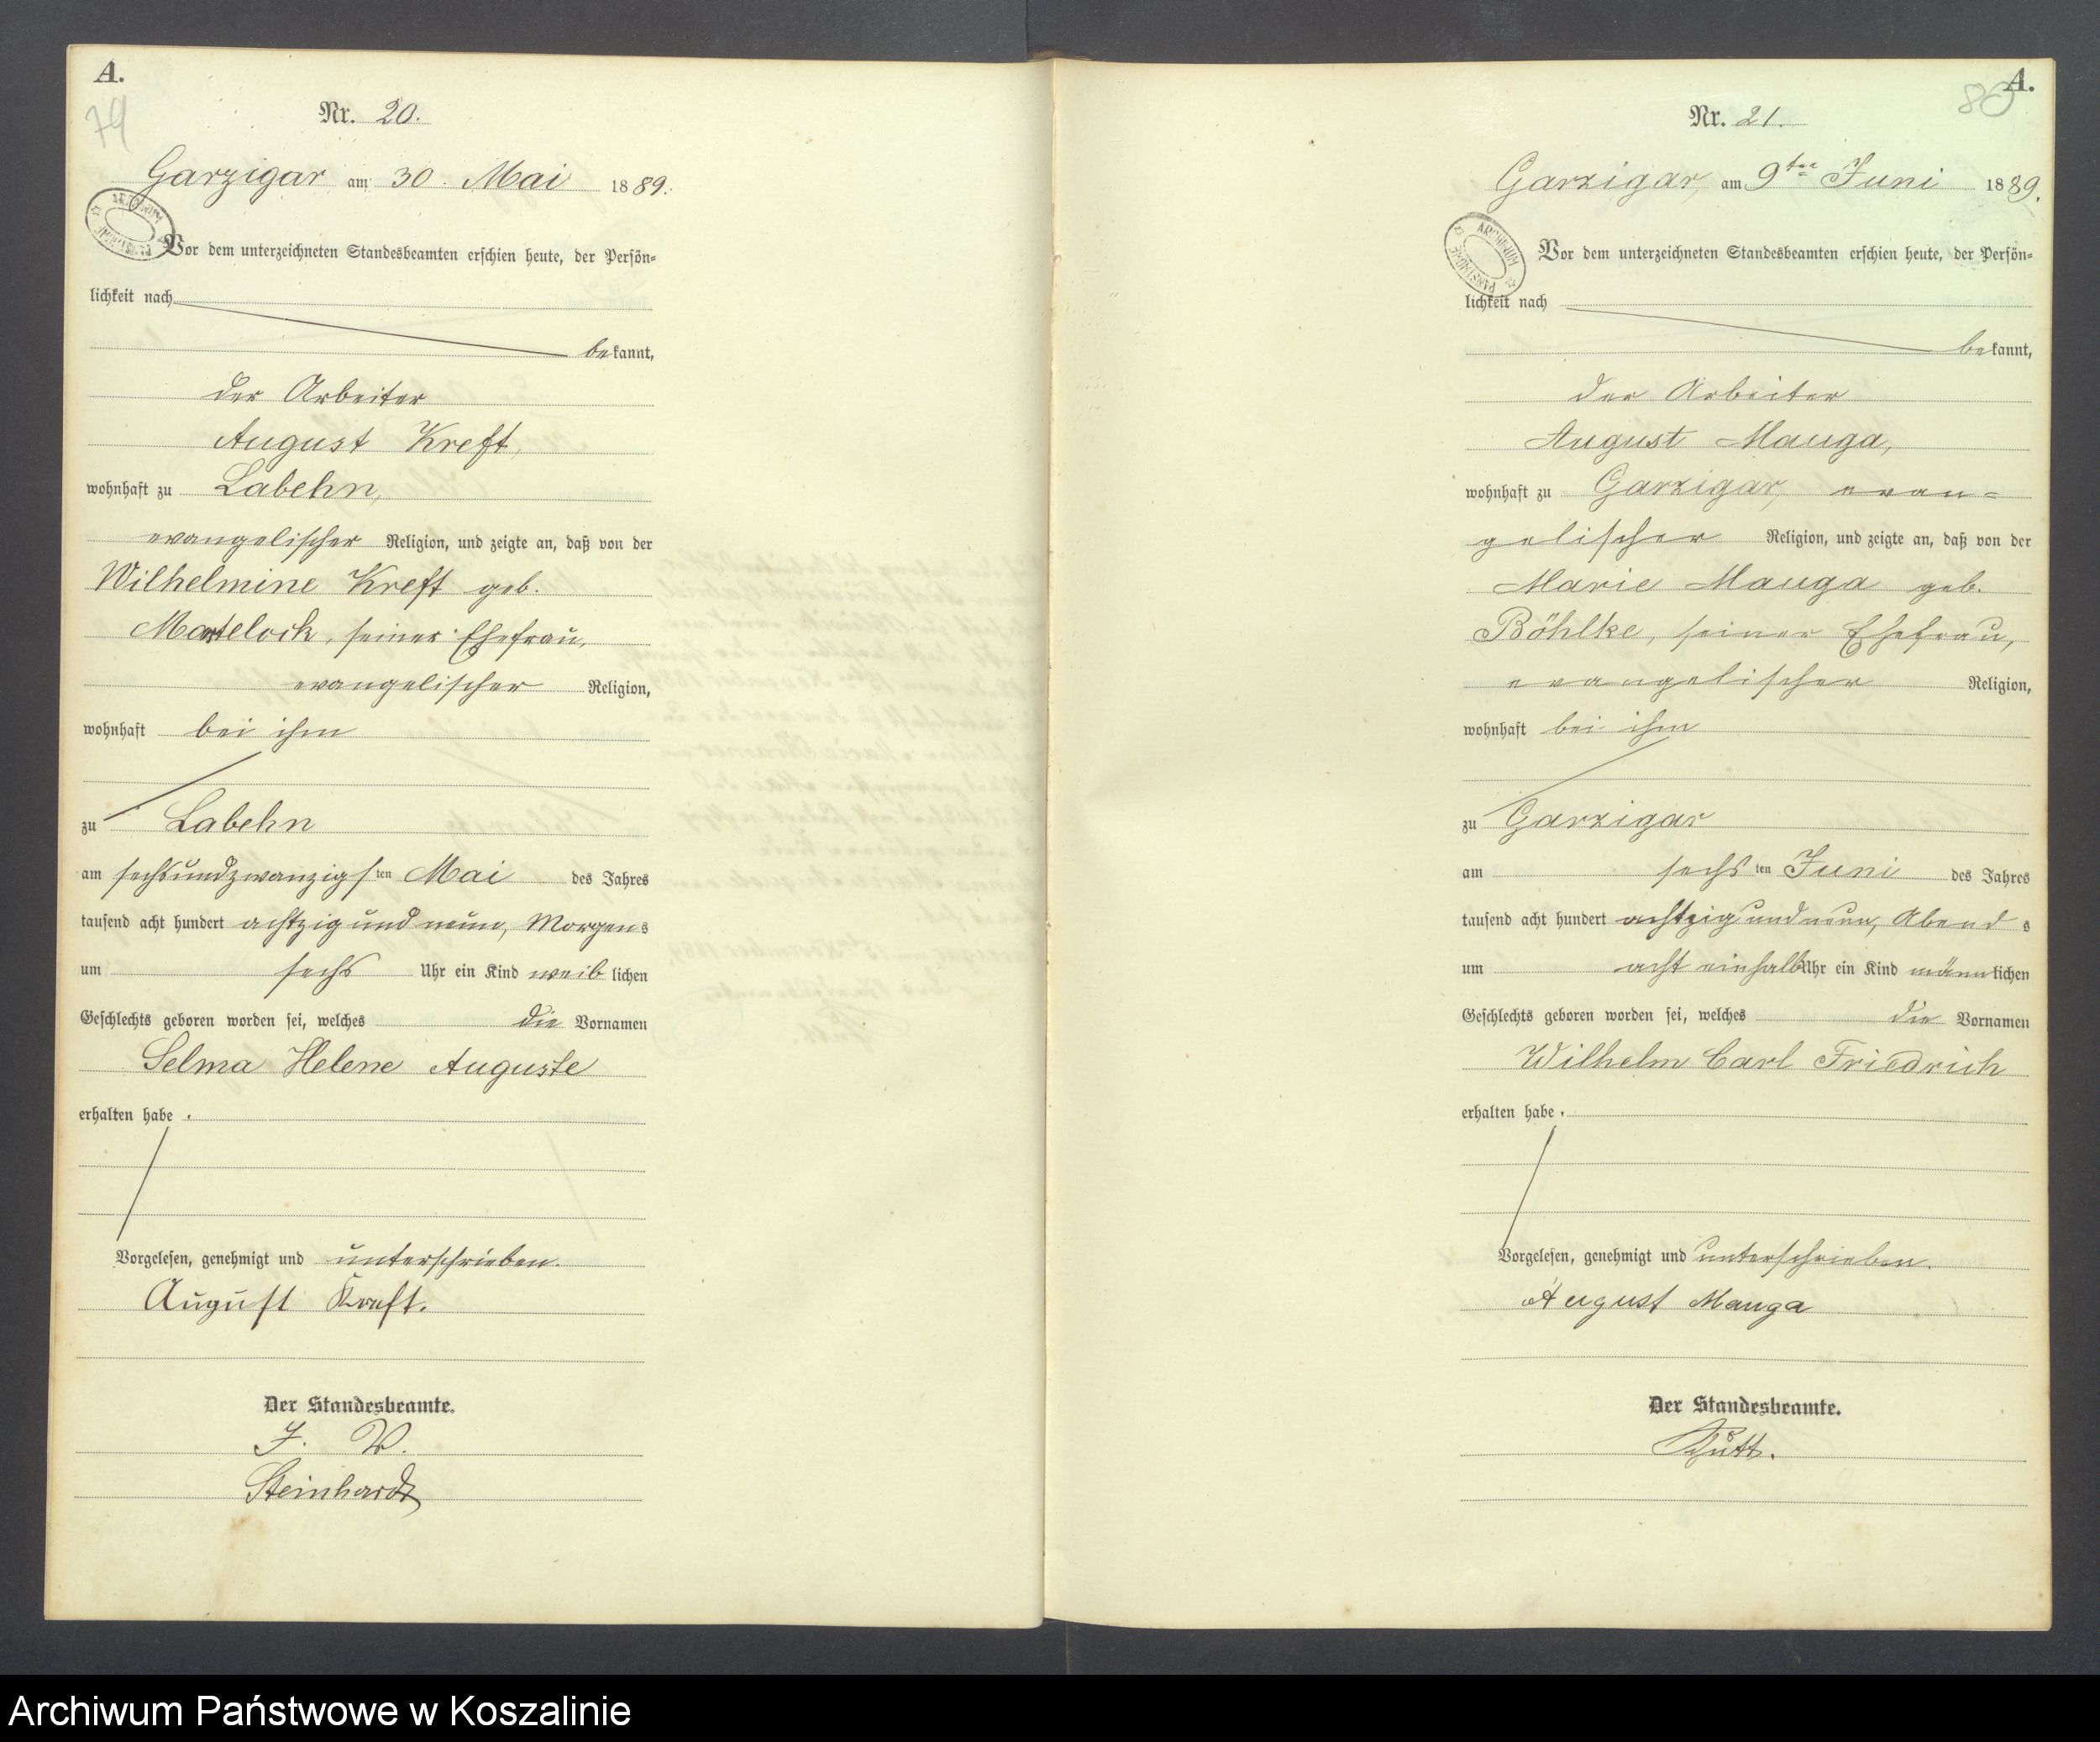 A.
79
Nr. 20.
Garzigar am 30. Mai 1889.
ARCHIWUM PAŃSTWOWE
Vor dem unterzeichneten Standesbeamten erschien heute, der Persön=
lichkeit nach
bekannt,
der Arbeiter
August Kreft,
wohnhaft zu Labehn,
evangelischer Religion, und zeigte an, daß von der
Wilhelmine Kreft geb.
Martelock, seiner Ehefrau,
evangelischer Religion,
wohnhaft bei ihm
zu Labehn
am sechsundzwanzigsten Mai des Jahres
tausend acht hundert achtzig und neun, Morgens
um sechs Uhr ein Kind weiblichen
Geschlechts geboren worden sei, welches die Vornamen
Selma Helene Auguste
erhalten habe.
Vorgelesen, genehmigt und unterschrieben.
August Kreft.
Der Standesbeamte.
J. V.
Steinhardt
A.
80
Nr. 21.
Garzigar, am 9ten Juni 1889.
ARCHIWUM PAŃSTWOWE
Vor dem unterzeichneten Standesbeamten erschien heute, der Persön=
lichkeit nach
bekannt,
der Arbeiter
August Mauga,
wohnhaft zu Garzigar, evan=
gelischer Religion, und zeigte an, daß von der
Marie Mauga geb.
Böhlke, seiner Ehefrau,
evangelischer Religion,
wohnhaft bei ihm
zu Garzigar
am sechsten Juni des Jahres
tausend acht hundert achtzig und neun, Abends
um acht einhalb Uhr ein Kind männlichen
Geschlechts geboren worden sei, welches die Vornamen
Wilhelm Carl Friedrich
erhalten habe.
Vorgelesen, genehmigt und unterschrieben.
August Mauga
Der Standesbeamte.
Archiwum Państwowe w Koszalinie